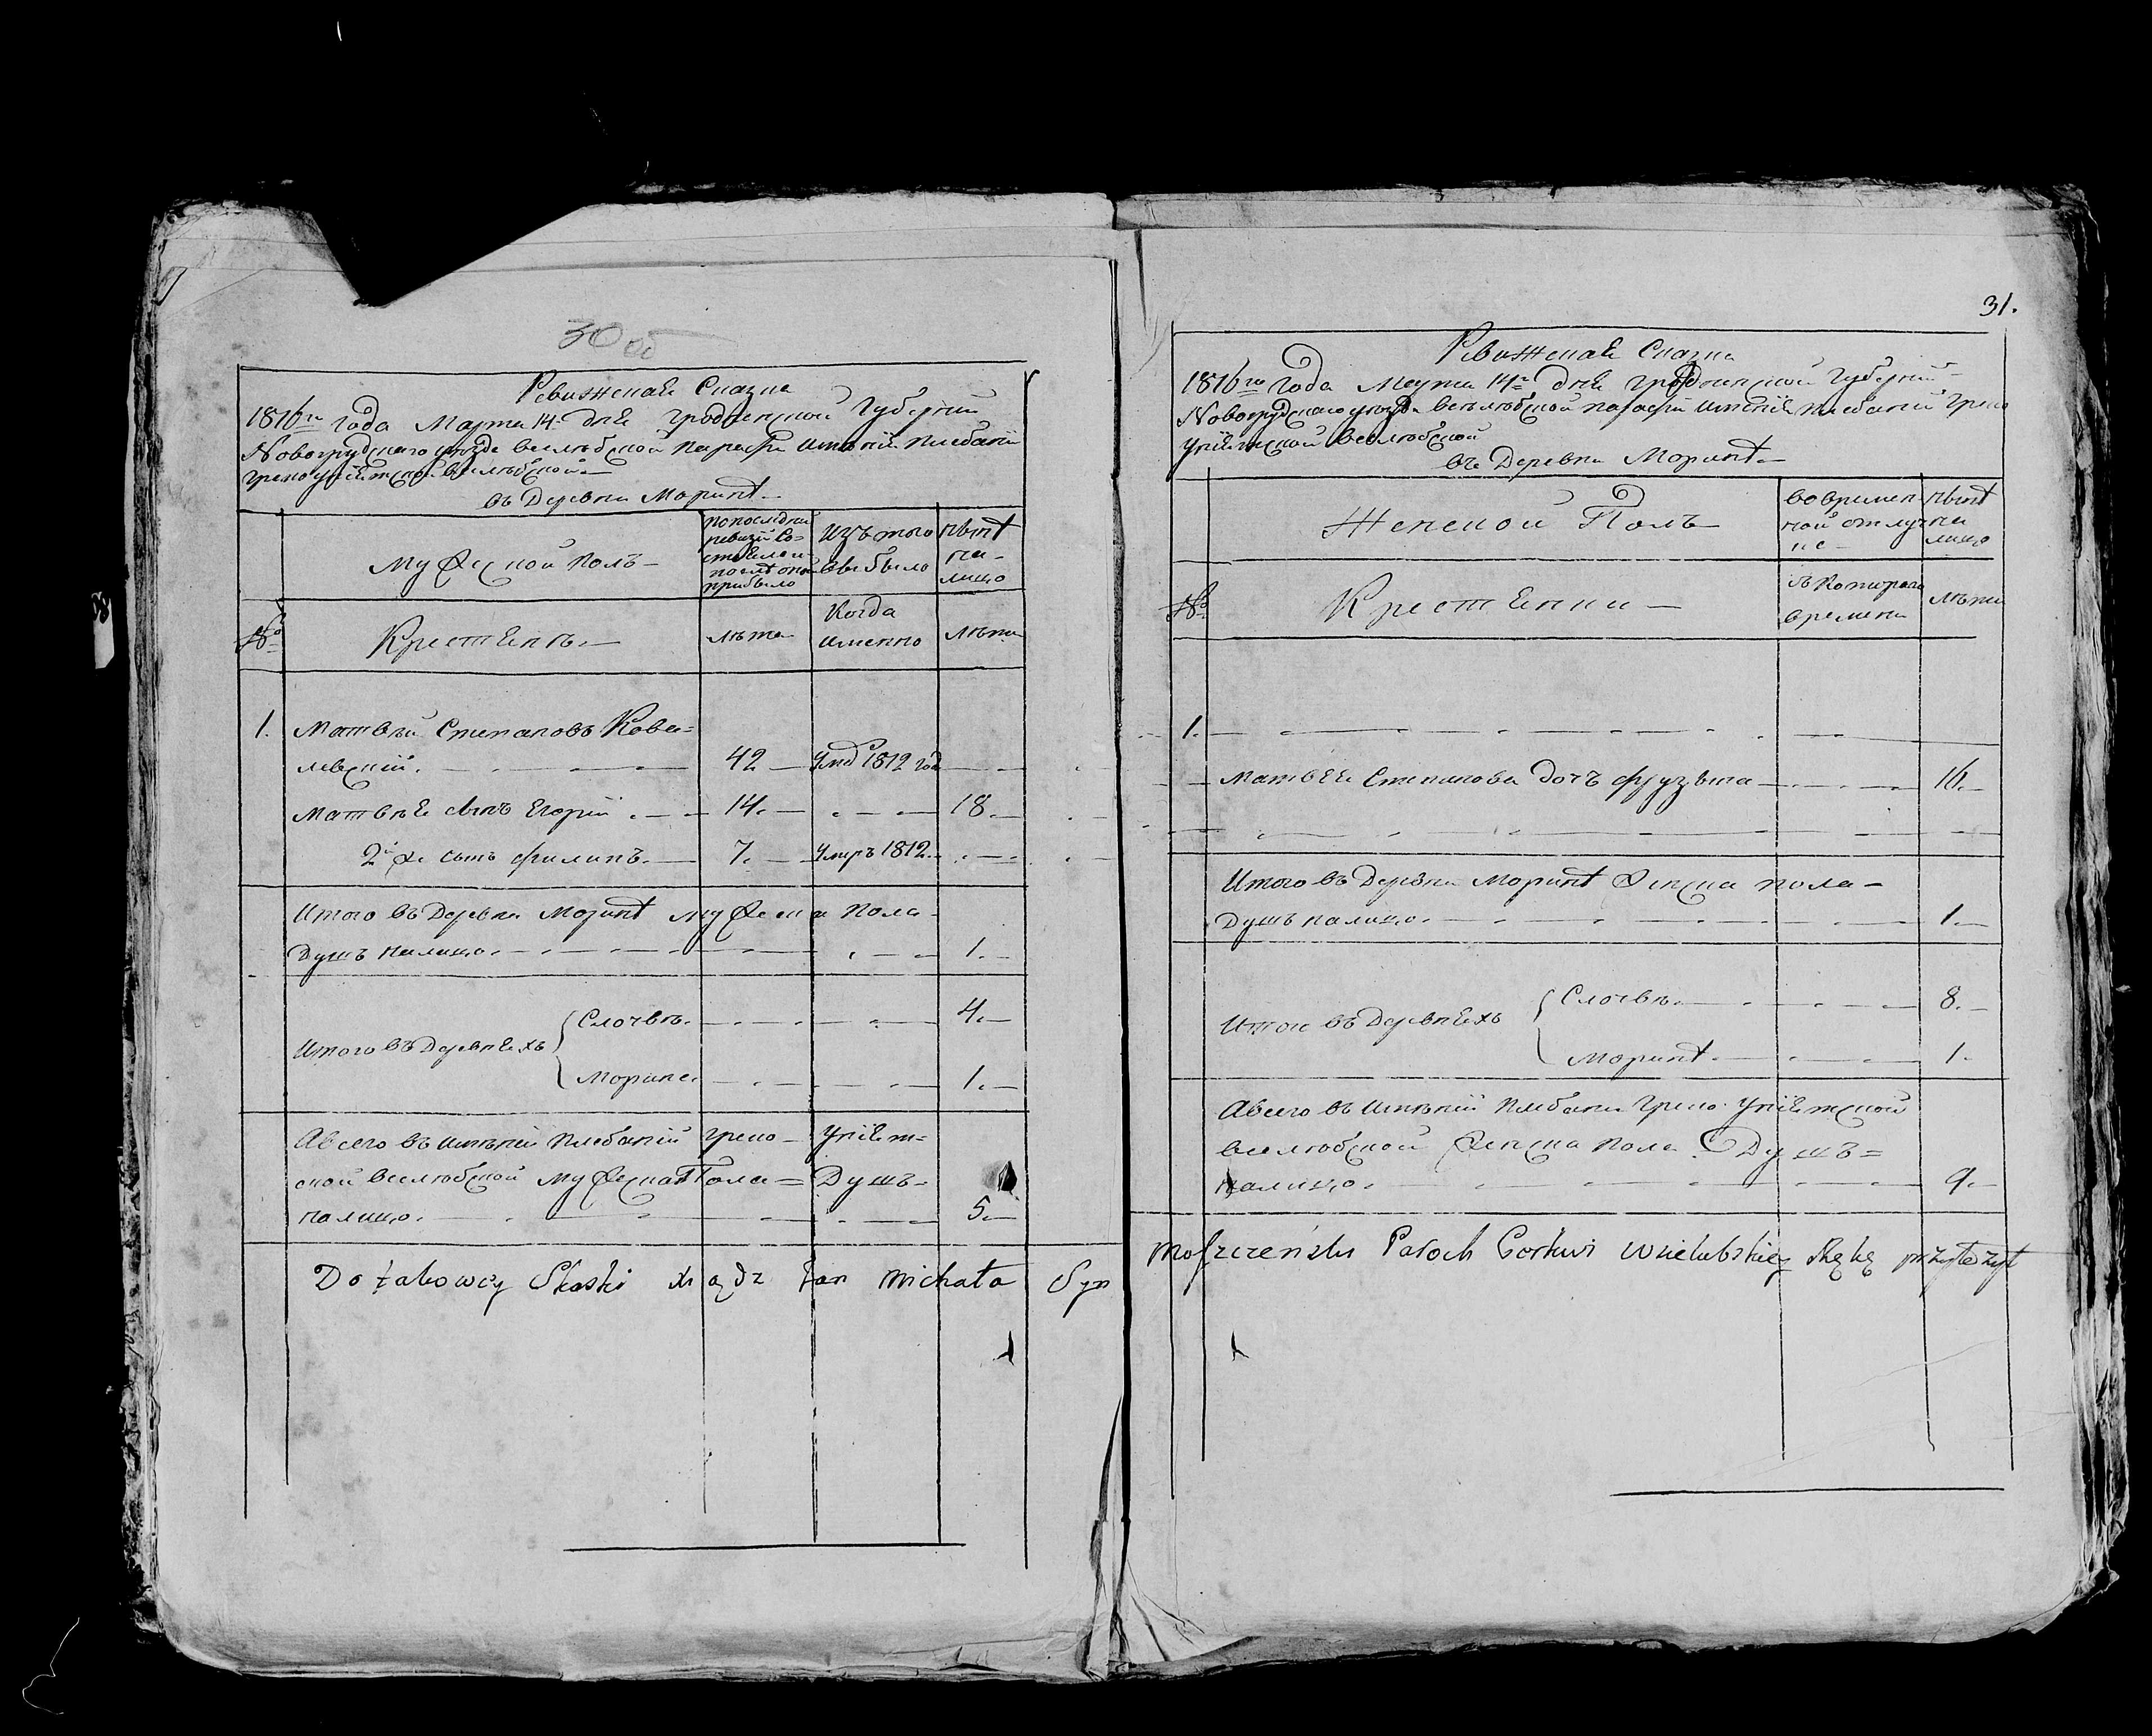 30 об
Ревижская Сказка
1816го года Марта 14 дня Гродненской Губерний
Новогрудскаго уезда Вселюбской парафіи имѣній Плебаній
Греко Уніятской Вселюбской
въ Деревни Моринѣ
Мужеской полъ
по последней
ревизіи со-
стояло и
послѣ оной
прибыло
Изъ того
выбыло
Нынѣ
на-
лицо
№
Крестьянъ
лѣта
Когда
именно
лѣта
1. Матвѣй Степановъ Кова=
левскій. 42 Умр 1812 год
Матвѣя сынъ Егорій 14. 18
2й же сынъ Филипъ. 7. Умръ 1812.
Итого въ Деревни Моринѣ мужеска пола
Душъ налицо. 1.
Итого въ Деревняхъ
Слочвѣ. 4.
Морине. 1.
А всего въ имѣній Плебаній Греко Уніят=
ской Вселюбской мужеска Пола = Душъ
налицо. 5.
Do takowey Skaski Xiądz Jan Michała Syn
31.
Ревижская Сказка
1816го года Марта 14 дня Гродненской Губерний
Новогрудскаго уезда Вселюбской парафіи имѣнія Плебаній Греко
Уніятской Вселюбской
въ Деревни Моринѣ
Женской Полъ
во времен-
ной отлуч-
ке
Нынѣ
на
лицо
№
Крестьянки
съ котораго
времени
лѣта
1.
Матвѣя Степанова дочъ Фрузына 16.
Итого въ Деревни Моринѣ женска пола
Душъ налицо. 1.
Итого въ Деревняхъ
Слочвѣ. 8.
Моринѣ. 1.
А всего въ имѣній Плебани Греко Уніятской
Вселюбской женска пола Душъ=
налицо. 9.
Paroch Cerkwi Wsielubskiey Rękę